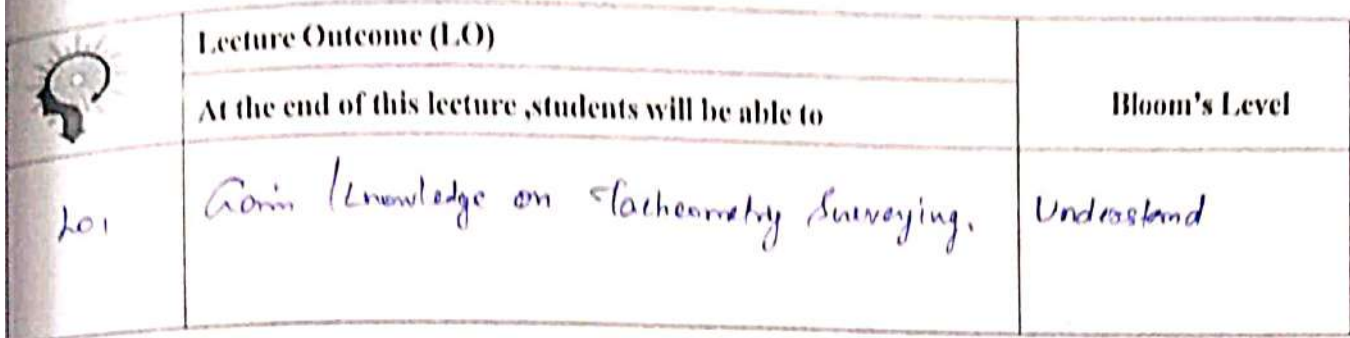 Lecture Outcome (LO)
At the end of this lecture ,students will be able to
Bloom's Level
LO1
Gain knowledge on Tacheometry Surveying.
Understand